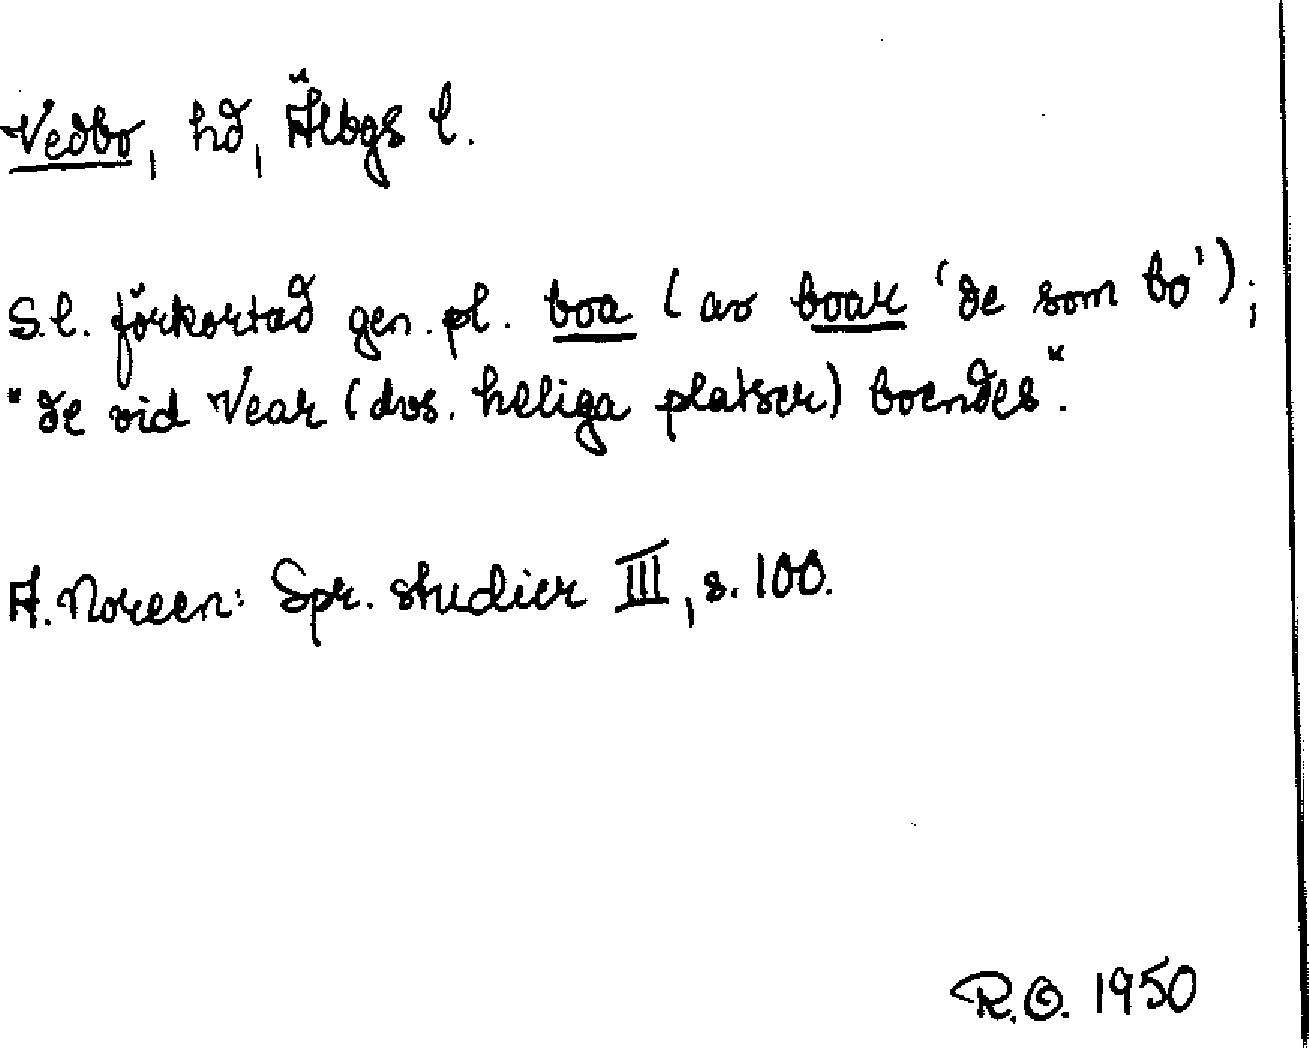 Vedbo, hd, Älbgs l.
S.l. förkortad gen. pl. boa (av boar 'de som bo');
"de vid Vear (dvs. heliga platser) boendes".
A. Noreen: Spr. studier III, s. 100.
R.O. 1950